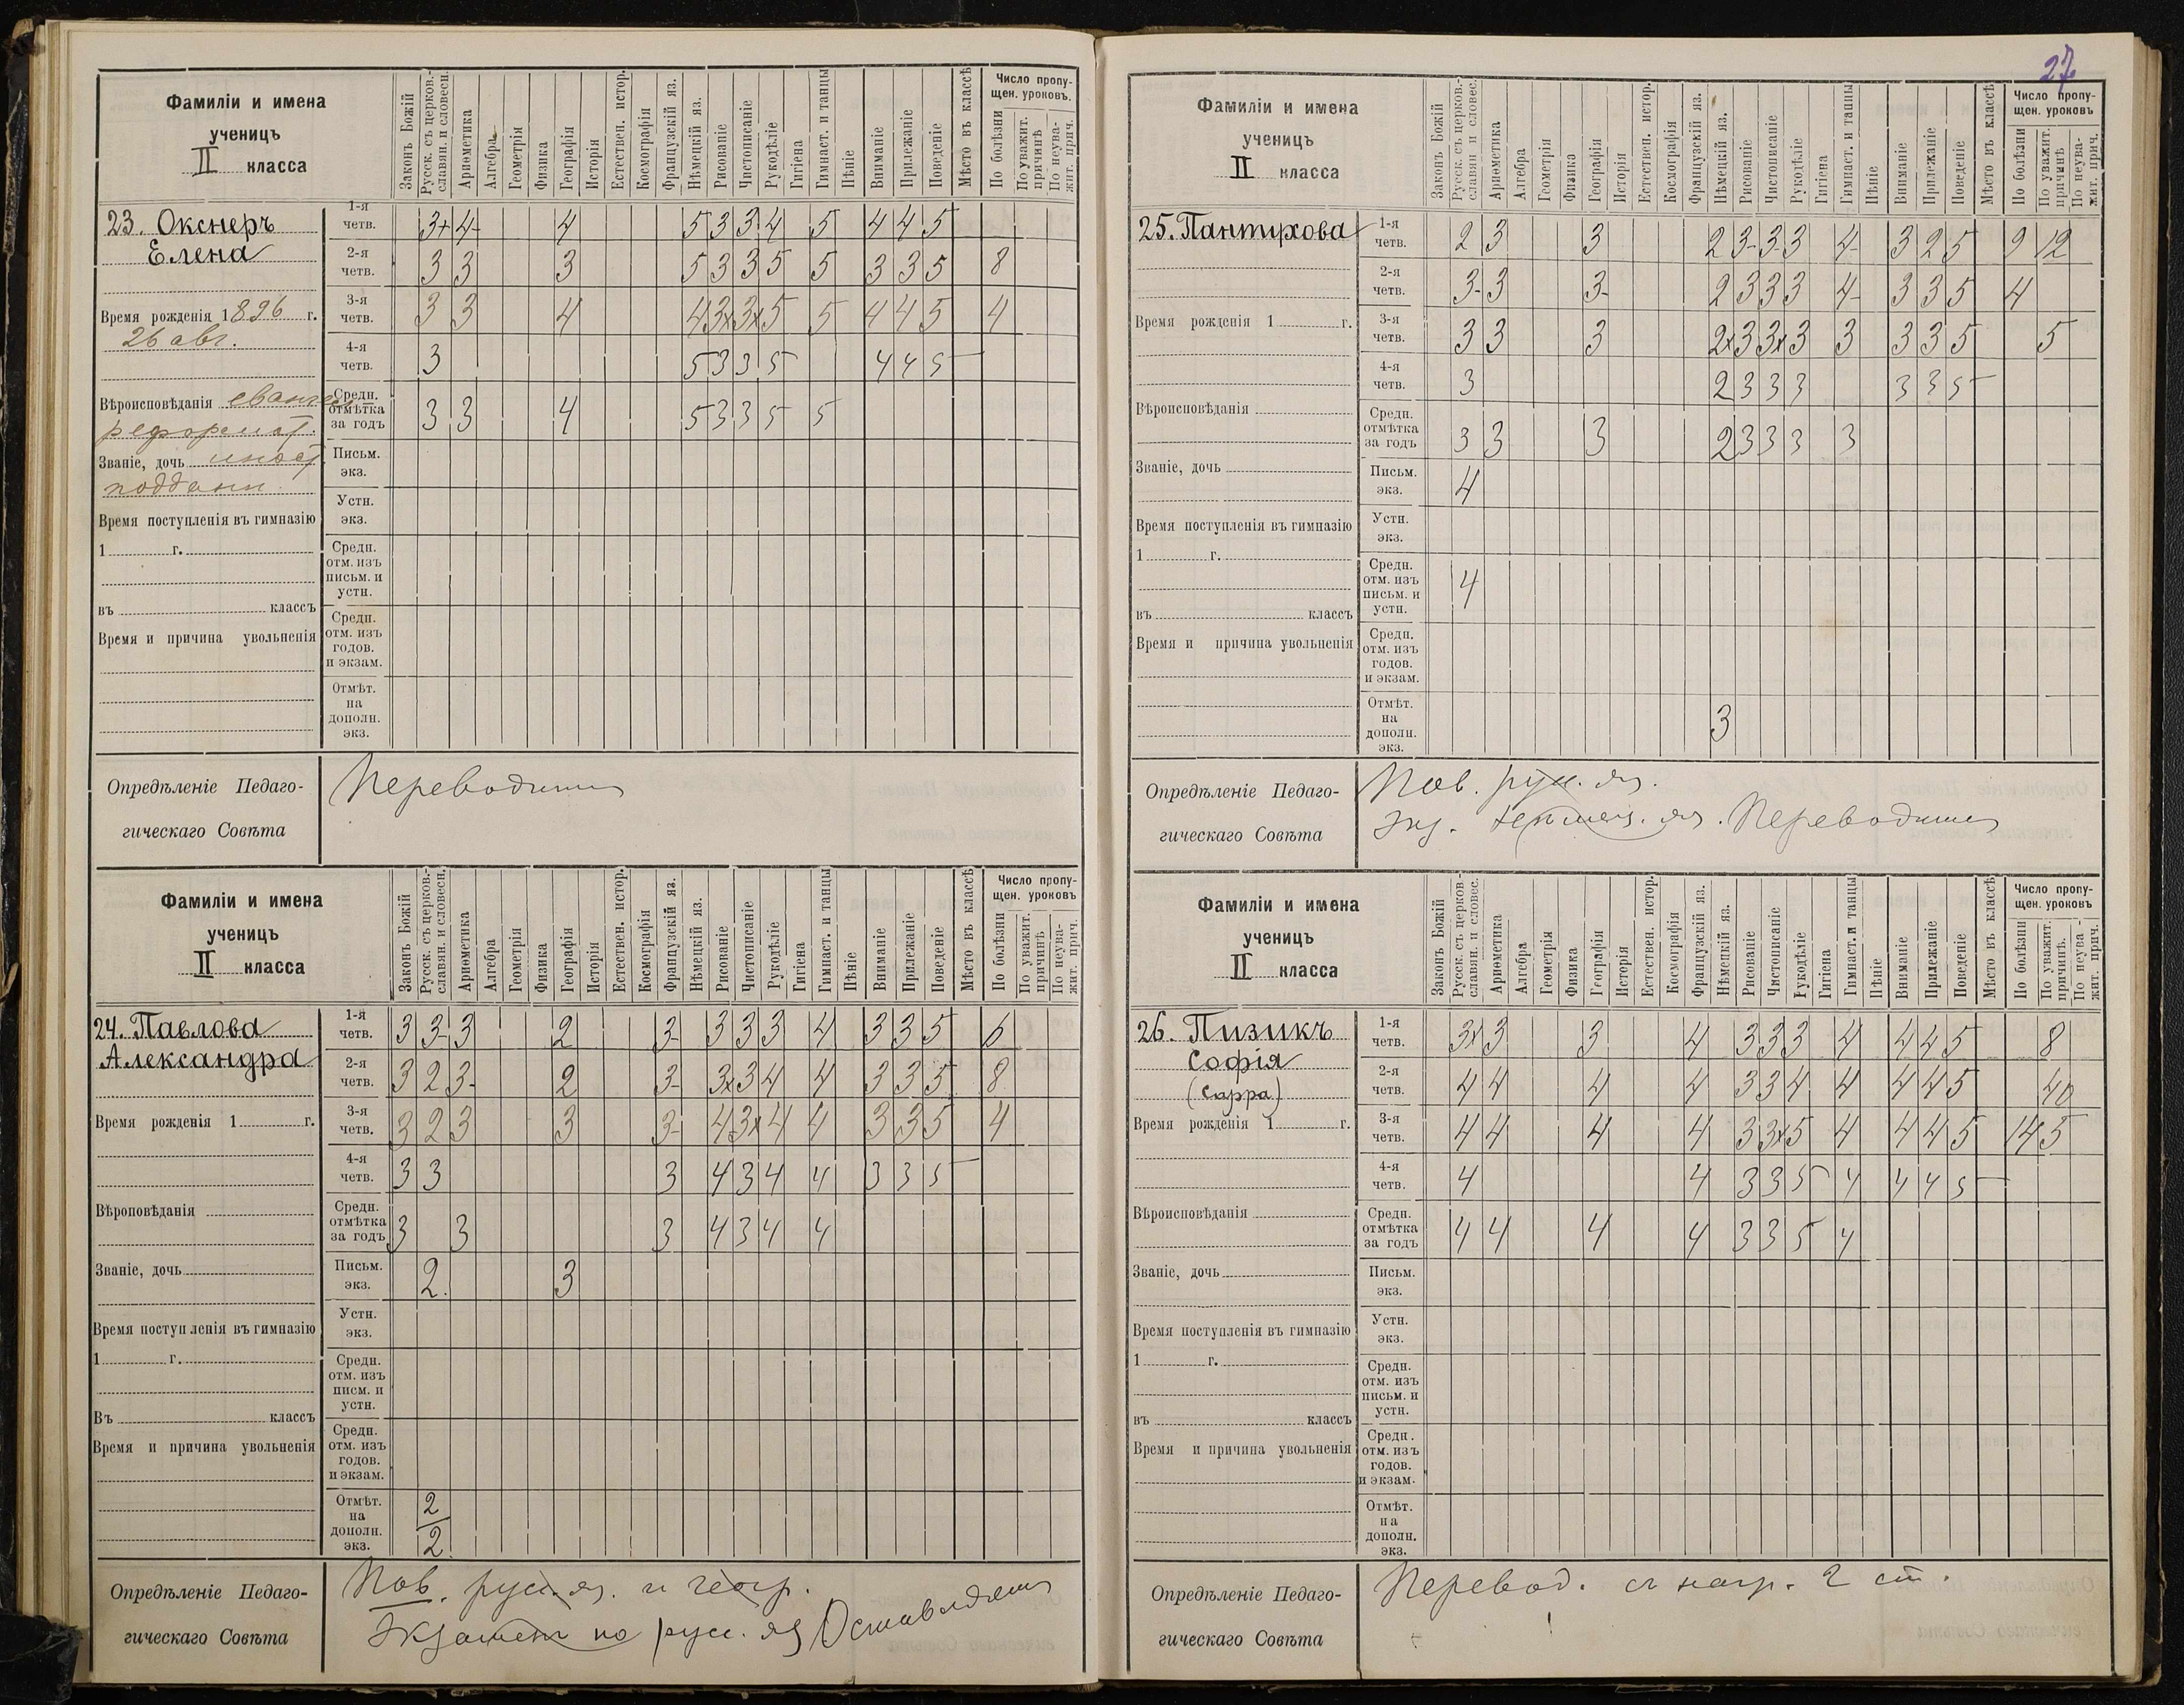 27
Фамиліи и имена
ученицъ
II класса
Законъ Божій
Русск. съ церков.-
славян. и словесн.
Ариѳметика
Алгебра
Геометрія
Физика
Географія
Исторія
Естествен. истор.
Космографія
Французскій яз.
Нѣмецкій яз.
Рисованіе
Чистописаніе
Рукодѣліе
Гигіена
Гимнаст. и танцы
Пѣніе
Вниманіе
Прилежаніе
Поведеніе
Мѣсто въ классѣ
Число пропу-
щен. уроковъ.
По болѣзни
По уважит.
причинѣ
По неува-
жит. прич.
23. Окснеръ
Елена
Время рожденія 1896 г.
26 авг.
Вѣроисповѣданія евангел.
реформат.
Званіе, дочь иност.
поддан.
Время поступленія въ гимназію
1 г.
въ классъ
Время и причина увольненія
1-я четв. 3+ 4- 4 5 3 3 4 5 4 4 5
2-я четв. 3 3 3 5 3 3 5 5 3 3 5 8
3-я четв. 3 3 4 4 3х 3х 5 5 4 4 5 4
4-я четв. 3 5 3 3 5 4 4 5
Средн. отмѣтка за годъ 3 3 4 5 3 3 5 5
Письм. экз.
Устн. экз.
Средн. отм. изъ письм. и устн.
Средн. отм. изъ годов. и экзам.
Отмѣт. на дополн. экз.
Опредѣленіе Педаго-
гическаго Совѣта
Переводится
Фамиліи и имена
ученицъ
II класса
Законъ Божій
Русск. съ церков.-
славян. и словесн.
Ариѳметика
Алгебра
Геометрія
Физика
Географія
Исторія
Естествен. истор.
Космографія
Французскій яз.
Нѣмецкій яз.
Рисованіе
Чистописаніе
Рукодѣліе
Гигіена
Гимнаст. и танцы
Пѣніе
Вниманіе
Прилежаніе
Поведеніе
Мѣсто въ классѣ
Число пропу-
щен. уроковъ
По болѣзни
По уважит.
причинѣ
По неува-
жит. прич.
24. Павлова
Александра
Время рожденія 1 г.
Вѣроповѣданія
Званіе, дочь
Время поступленія въ гимназію
1 г.
Въ классъ
Время и причина увольненія
1-я четв. 3 3- 3 2 3- 3 3 3 4 3 3 5 6
2-я четв. 3 2 3- 2 3- 3х 3 4 4 3 3 5 8
3-я четв. 3 2 3 3 3- 4 3х 4 4 3 3 5 4
4-я четв. 3 3 3 4 3 4 4 3 3 5
Средн. отмѣтка за годъ 3 3 3 4 3 4 4
Письм. экз. 2. 3
Устн. экз.
Средн. отм. изъ писм. и устн.
Средн. отм. изъ годов. и экзам.
Отмѣт. на дополн. экз. 2 2
Опредѣленіе Педаго-
гическаго Совѣта
Пов. русск. яз. и геогр.
Экзамен по русс. яз Оставляется
Фамиліи и имена
ученицъ
II класса
Законъ Божій
Русск. съ церков.-
славян и словес.
Ариѳметика
Алгебра
Геометрія
Физика
Географія
Исторія
Естествен. истор.
Космографія
Французскій яз.
Нѣмецкій яз.
Рисованіе
Чистописаніе
Рукодѣліе
Гигіена
Гимнаст. и танцы
Пѣніе
Вниманіе
Прилежаніе
Поведеніе
Мѣсто въ классѣ
Число пропу-
щен. уроковъ
По болѣзни
По уважит.
причинѣ
По неува-
жит. прич.
25. Пантюхова
Время рожденія 1 г.
Вѣроисповѣданія
Званіе, дочь
Время поступленія въ гимназію
1 г.
въ классъ
Время и причина увольненія
1-я четв. 2 3 3 2 3- 3- 3 4- 3 2 5 9 12
2-я четв. 3- 3 3- 2 3 3 3 4- 3 3 5 4
3-я четв. 3 3 3 2х 3 3х 3 3 3 3 5 5
4-я четв. 3 2 3 3 3 3 3 5
Средн. отмѣтка за годъ 3 3 3 2 3 3 3 3
Письм. экз. 4
Устн. экз.
Средн. отм. изъ письм. и устн. 4
Средн. отм. изъ годов. и экзам.
Отмѣт. на дополн. экз. 3
Опредѣленіе Педаго-
гическаго Совѣта
Пов. русс. яз.
Экз. нѣмец. яз. Переводится
Фамиліи и имена
ученицъ
II класса
Законъ Божій
Русск. съ церков-
славян. и словес.
Ариѳметика
Алгебра
Геометрія
Физика
Географія
Исторія
Естествен. истор.
Космографія
Французскій яз.
Нѣмецкій яз.
Рисованіе
Чистописаніе
Рукодѣліе
Гигіена
Гимнаст. и танцы
Пѣніе
Вниманіе
Прилежаніе
Поведеніе
Мѣсто въ классѣ
Число пропу-
щен. уроковъ
По болѣзни
По уважит.
причинѣ.
По неува-
жит. прич.
26. Пизикъ
Софія
(Сарра)
Время рожденія 1 г.
Вѣроисповѣданія
Званіе, дочь
Время поступленія въ гимназію
1 г.
въ классъ
Время и причина увольненія
1-я четв. 3х 3 3 4 3 3 3 4 4 4 5 8
2-я четв. 4 4 4 4 3 3 4 4 4 4 5 40
3-я четв. 4 4 4 4 3 3х 5 4 4 4 5 14 5
4-я четв. 4 4 3 3 5 4 4 4 5
Средн. отмѣтка за годъ 4 4 4 4 3 3 5 4
Письм. экз.
Устн. экз.
Средн. отм. изъ письм. и устн.
Средн. отм. изъ годов. и экзам.
Отмѣт. на дополн. экз.
Опредѣленіе Педаго-
гическаго Совѣта
Перевод. съ нагр. 2 ст.